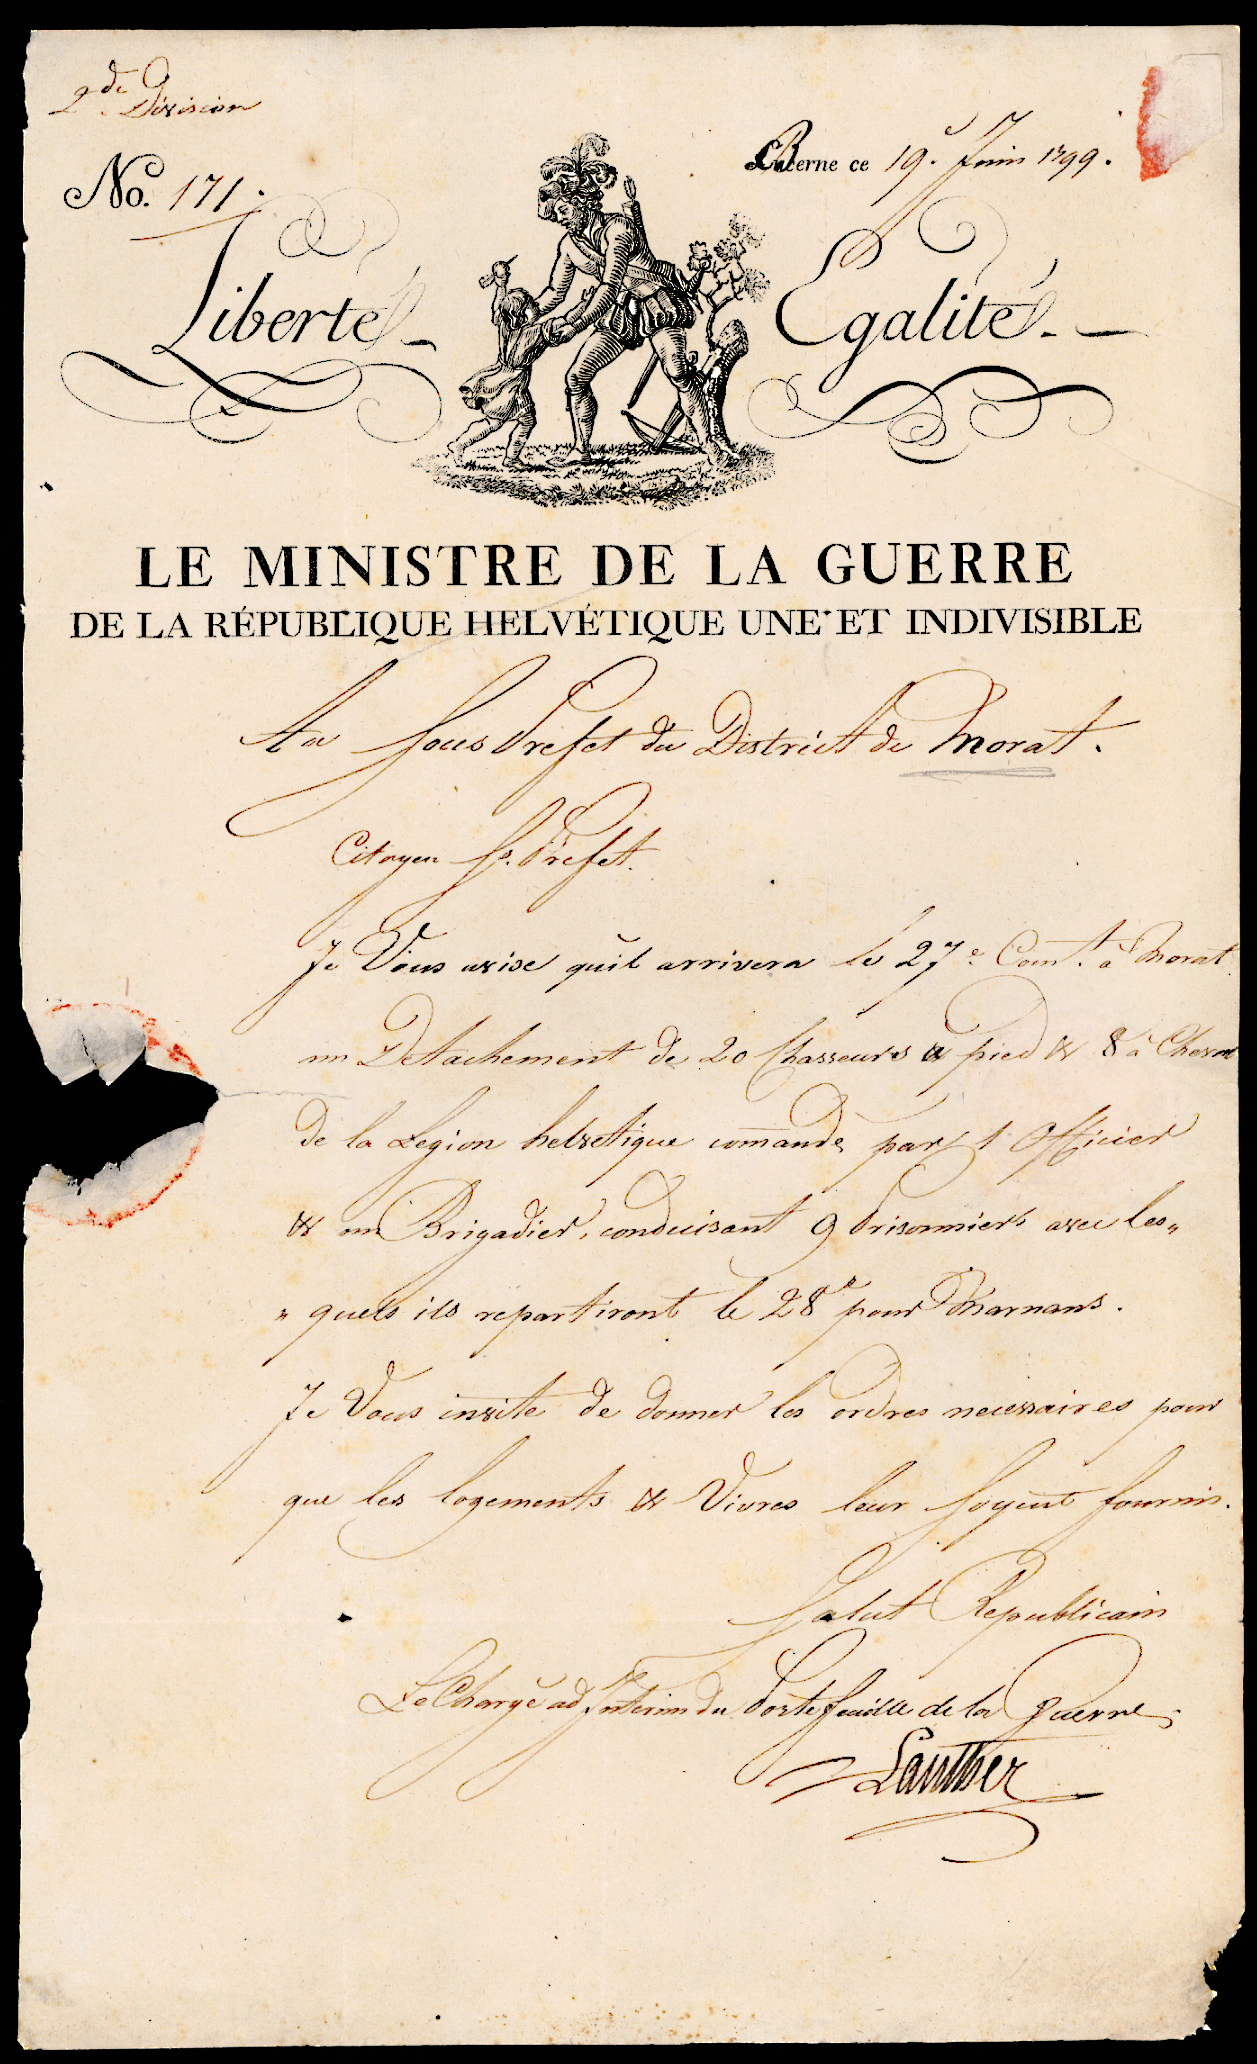 2de Division
No. 171.
Berne ce 19e Juin 1799.
Liberté - Egalité -
LE MINISTRE DE LA GUERRE
DE LA RÉPUBLIQUE HELVÉTIQUE UNE ET INDIVISIBLE
Au Sous Prefet du District de Morat.
Citoyen Ss. Prefet.
Je Vous avise qu'il arrivera le 27e Cour.t à Morat
un Détachement de 20 Chasseurs a pied & 8 à Cheval
de la Legion helvetique comandé par 1 Officier
& un Brigadier, conduisant 9 Prisonniers avec les„
„ quels ils repartiront le 28e pour Marnans.
Je Vous invite de donner les ordres necessaires pour
que les logements & Vivres leur soyent fournis.
Salut Republicain
Le Chargé ad Interim du Portefeuille de la Guerre,
Lanther